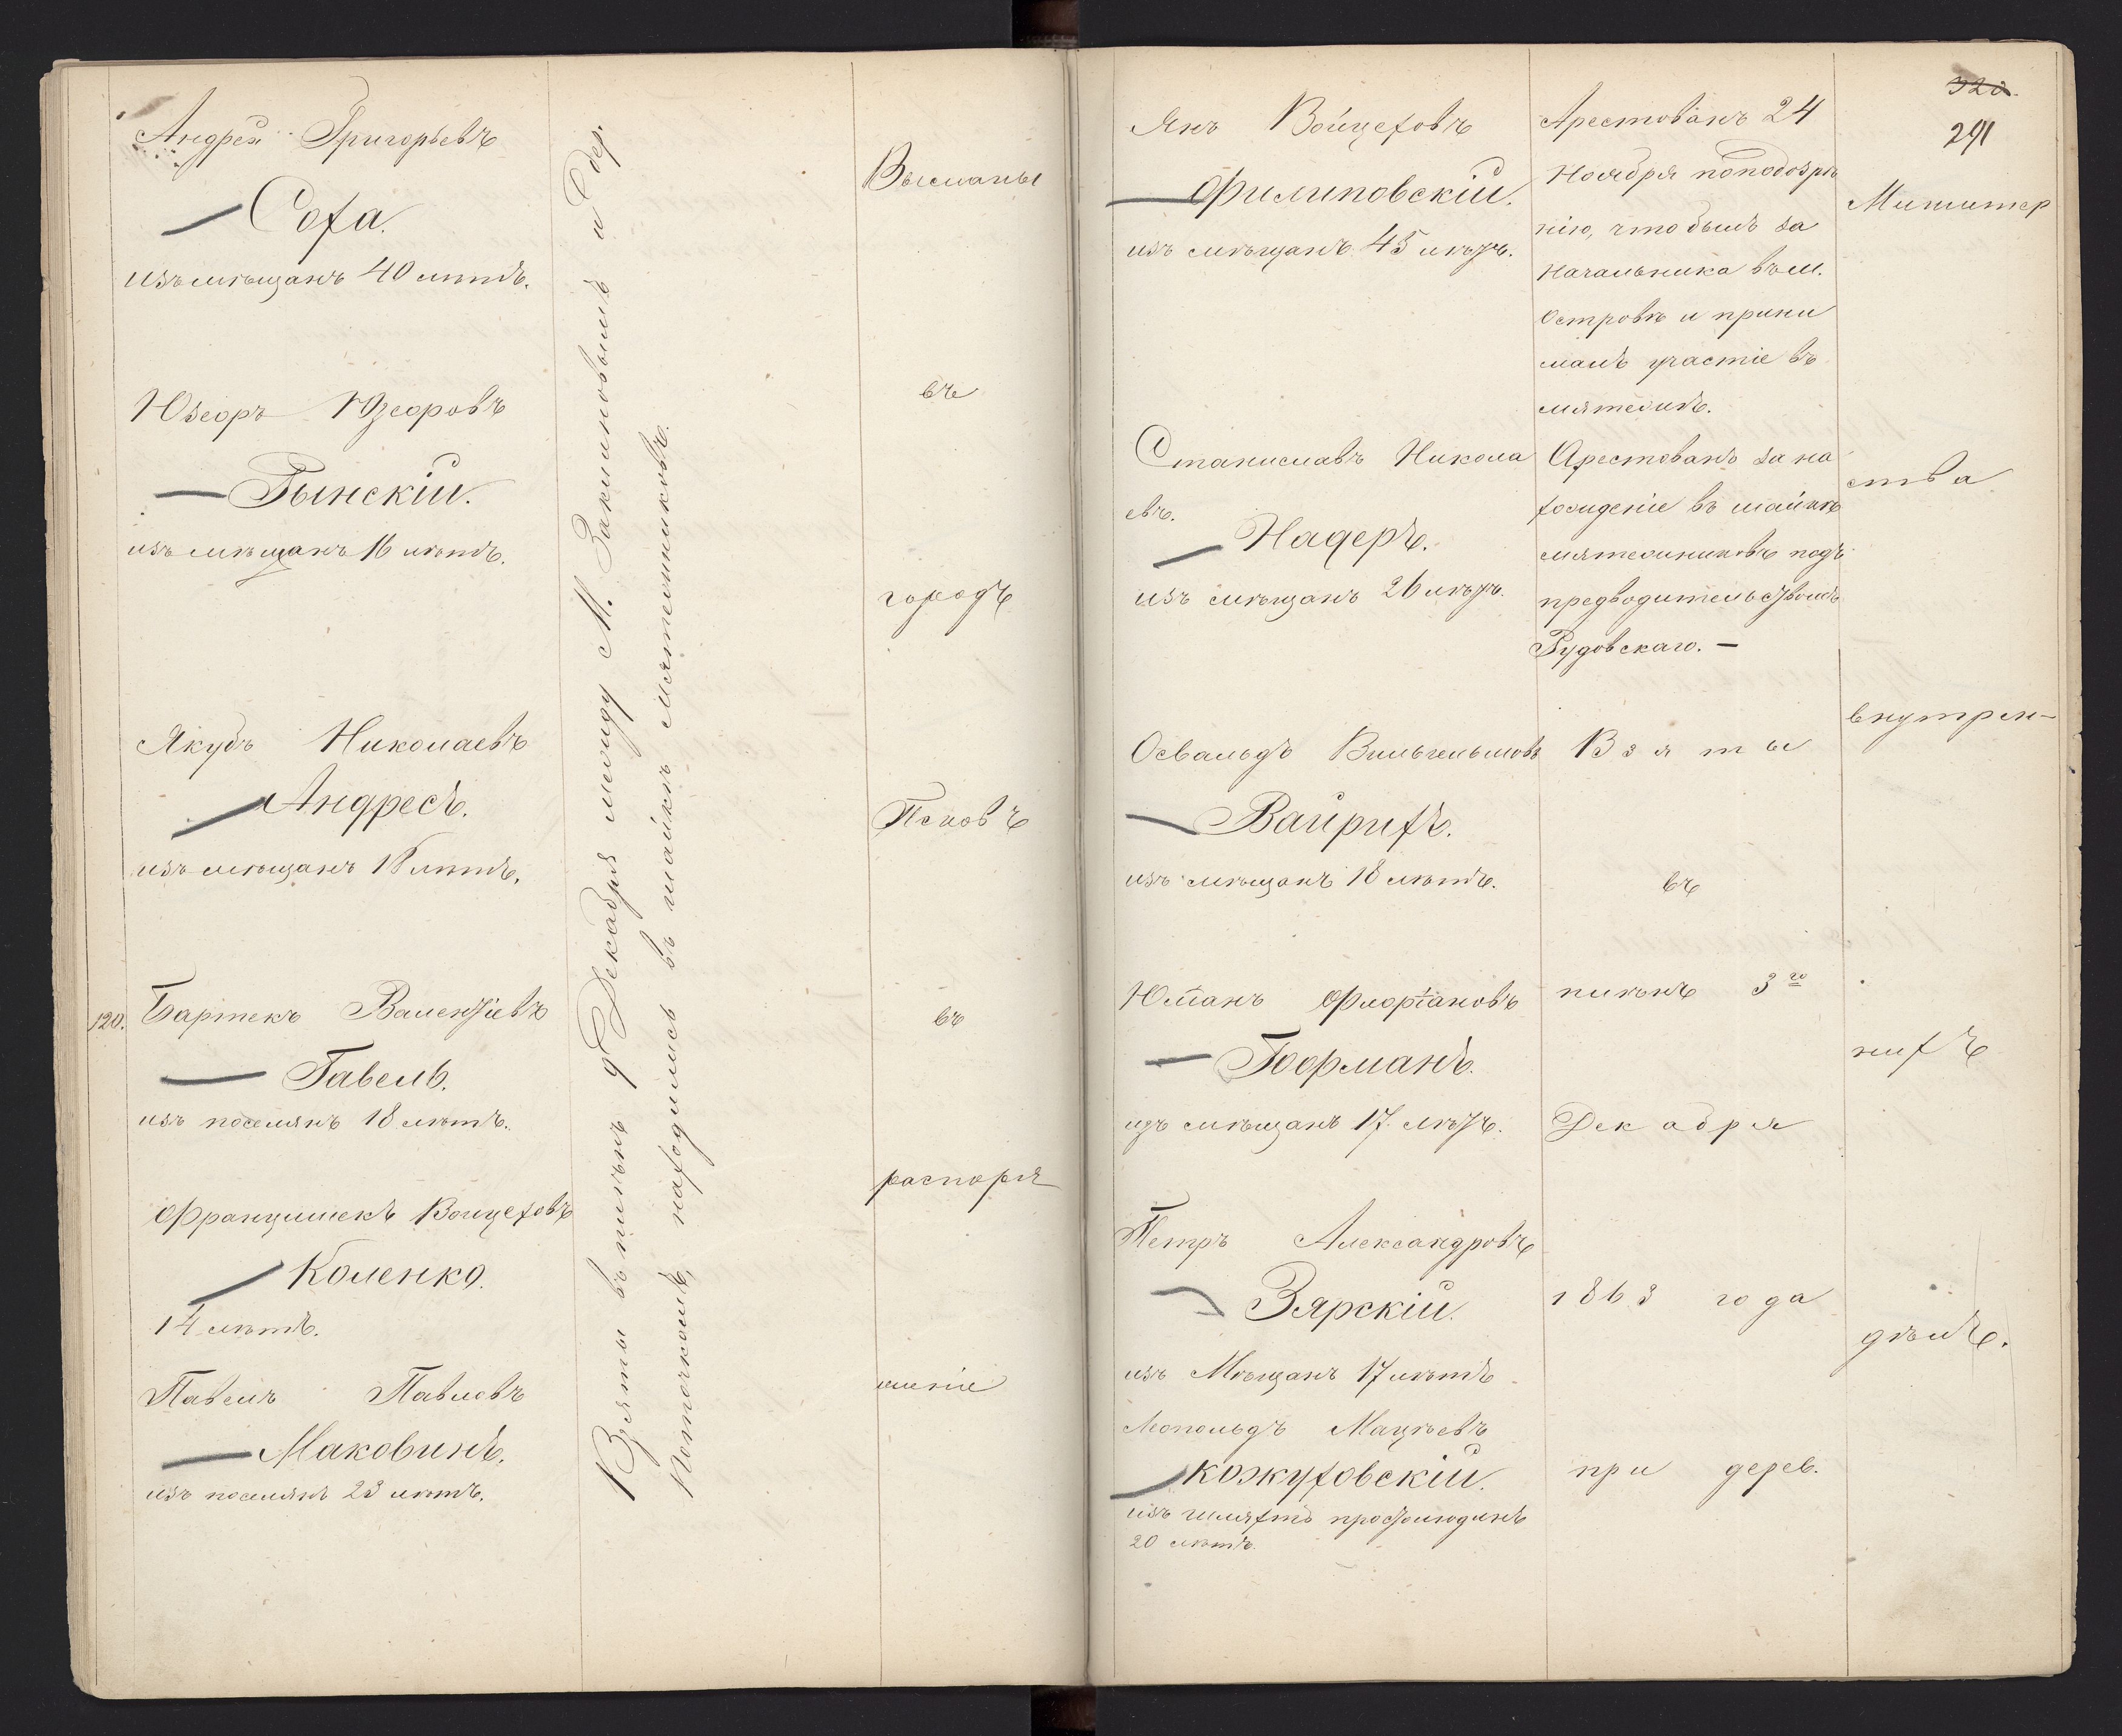 Андрей Григорьевъ
Соха.
изъ мѣщанъ 40 лѣтъ.
Юзефъ Юзефовъ
Рынскій.
изъ мѣщанъ 16 лѣтъ.
Якубъ Николаевъ
Андресъ.
изъ мѣщанъ 18 лѣтъ.
120. Бартекъ Валентіевъ
Гавель.
изъ поселянъ 18 лѣтъ.
Францишекъ Войцеховъ
Коленко.
14 лѣтъ.
Павелъ Павловъ
Маковинъ.
изъ поселянъ 23 лѣтъ.
Взяты въ плѣнъ 9 Декабря между М. и дер.
находились въ шайкѣ мятежниковъ.
Высланы
въ
городъ
Псковъ
въ
распоря
женіе
320.
291
Янъ Войцеховъ
Филиповскій.
изъ мѣщанъ 45 лѣтъ.
Станиславъ Никола
евъ.
Надеръ.
изъ мѣщанъ 26 лѣтъ.
Освальдъ Вильгельмовъ
Вайрихъ.
изъ мѣщанъ 18 лѣтъ.
Юліанъ Флоріановъ
Гофманъ.
изъ мѣщанъ 17 лѣтъ.
Петръ Александровъ
Зярскій.
изъ Мѣщанъ 17 лѣтъ
Леопольдъ Мацѣевъ
Кожуховскій.
изъ шляхты простолюдинъ
20 лѣтъ.
Арестованъ 24
Ноября по подозрѣ
нію, что былъ за
начальника въ м.
Островѣ и прини
малъ участіе въ
мятежѣ.
Арестованъ за на
хожденіе въ шайкѣ
мятежниковъ подъ
предводительствомъ
Рудовскаго. —
Взяты
въ
плѣнъ 3го
Декабря
1863 года
при дерев.
Министер
ства
внутрен-
нихъ
дѣлъ.